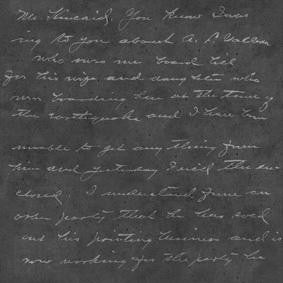 Mr. Kincaid, You know I was
to you about A. L.
who owes me board bill
for his wife and daughter who
were boarding here at the time of
the earthquake and I have been
unable to get any thing from
him and yesterday I rec'd the en-
closed. I understand from an
other party that he has sold
out his printing business and is
now working for the party he